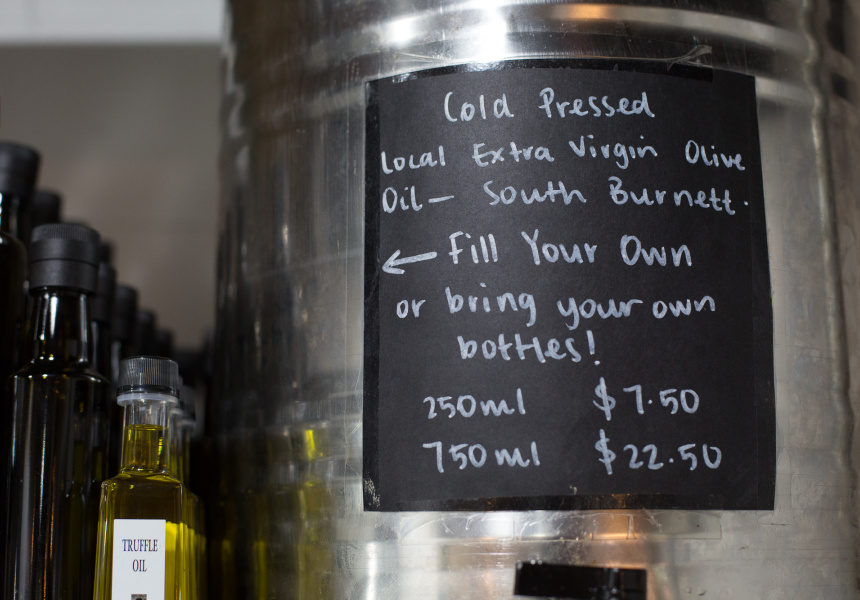 Cold Pressed
Local Extra Virgin Olive
Oil — South Burnett.
← Fill Your Own
or bring your own
bottles!
250ml $7.50
750ml $22.50
TRUFFLE
OIL